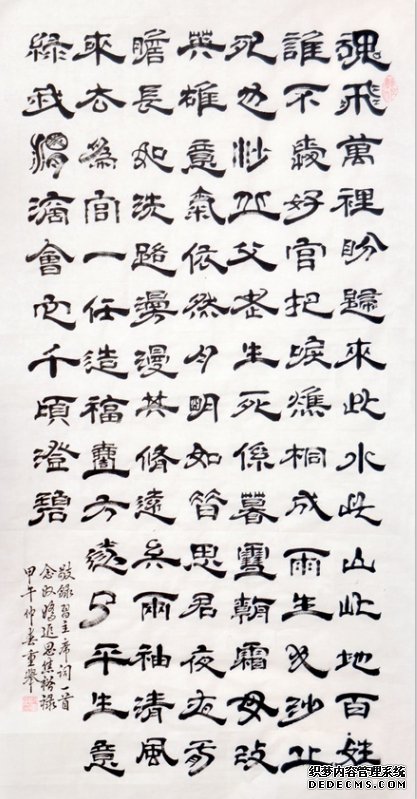 魂飛萬裡盼歸來此水此山此地百姓
誰不愛好官把淚焦桐成雨生也沙丘
死也沙丘父老生死係暮雪朝霜毋改
英雄意氣依然月明如昔思君夜夜肝
膽長如洗路漫漫其脩遠矣兩袖清風
來去為官一任造福壹方遂了平生意
綠我涓滴會它千頃澄碧
敬錄習主席詞一首
念奴嬌追思焦裕祿
甲午仲春
织梦内容管理系统
DEDECMS.COM